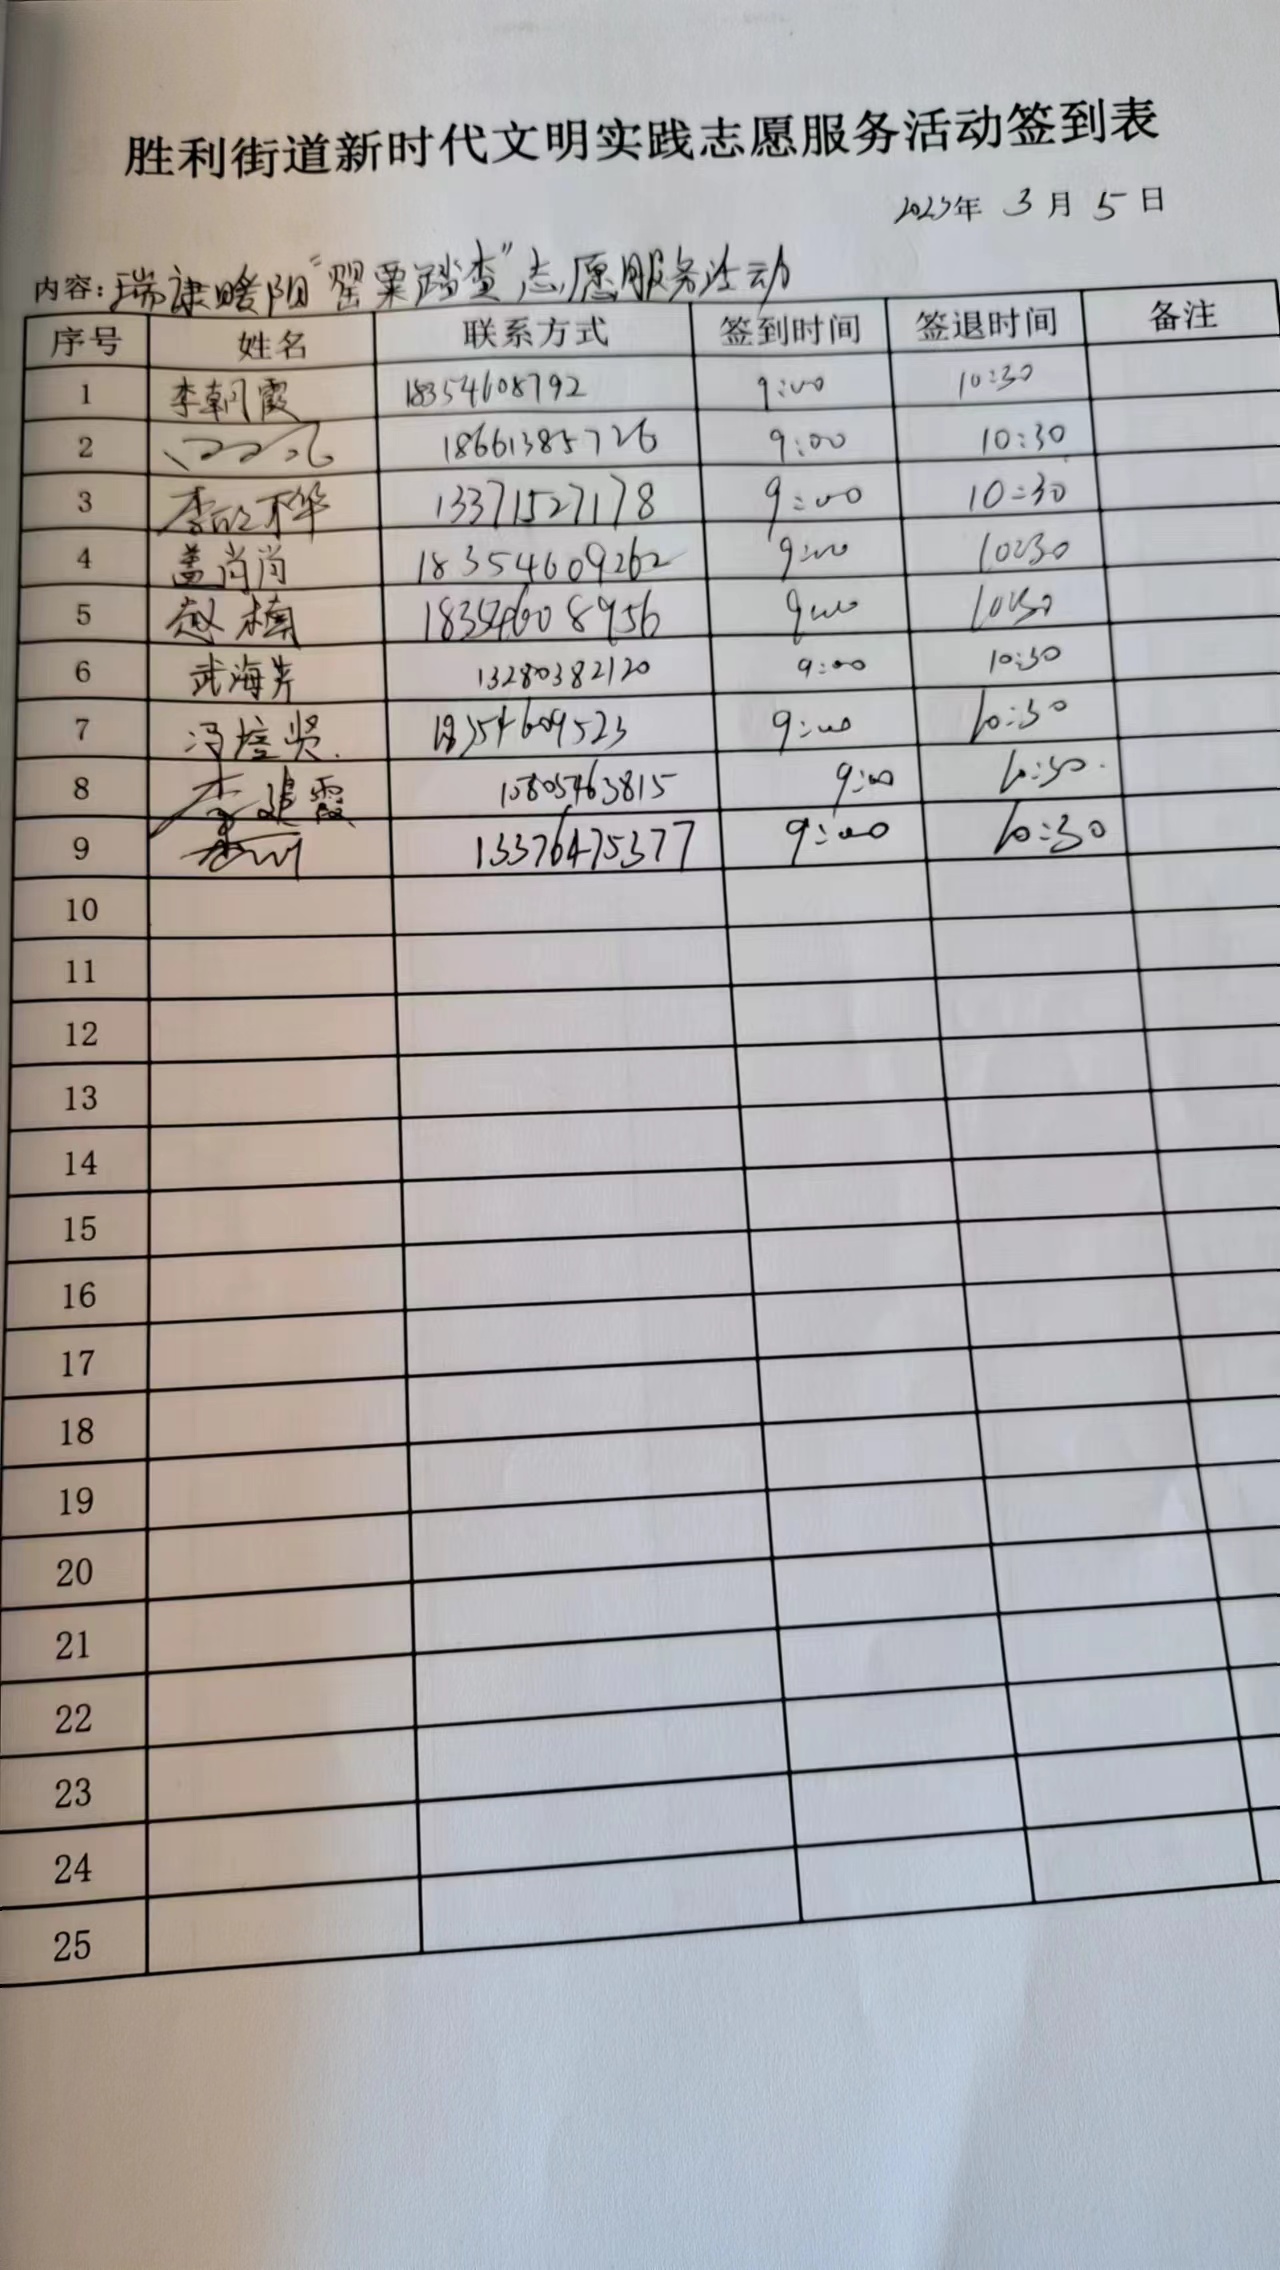 胜利街道新时代文明实践志愿服务活动签到表
2023年 3 月 5 日
内容：瑞康暖阳“罂粟踏查”志愿服务活动
序号 姓名 联系方式 签到时间 签退时间 备注
1 李朝霞 18354608792 9:00 10:30
2 18661385726 9:00 10:30
3 13371527178 9:00 10:30
4 盖尚尚 18354609262 9:00 10:30
5 赵楠 18354608956 9:00 10:30
6 武海芹 13280382120 9:00 10:30
7 冯培贤 18354609523 9:00 10:30
8 李建霞 15805463815 9:00 10:30
9 13376475377 9:00 10:30
10
11
12
13
14
15
16
17
18
19
20
21
22
23
24
25